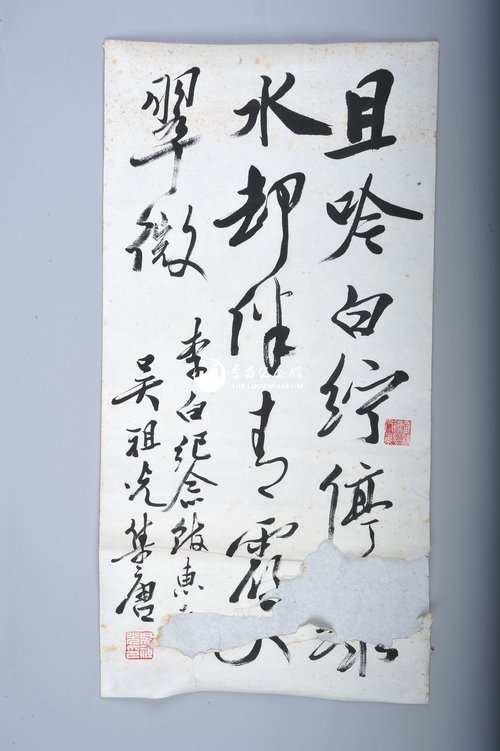 且吟白紵停
水却伴青霞
翠微
李白纪念馆惠
吴祖光集唐
李白纪念馆
THE LIBAI MUSEUM